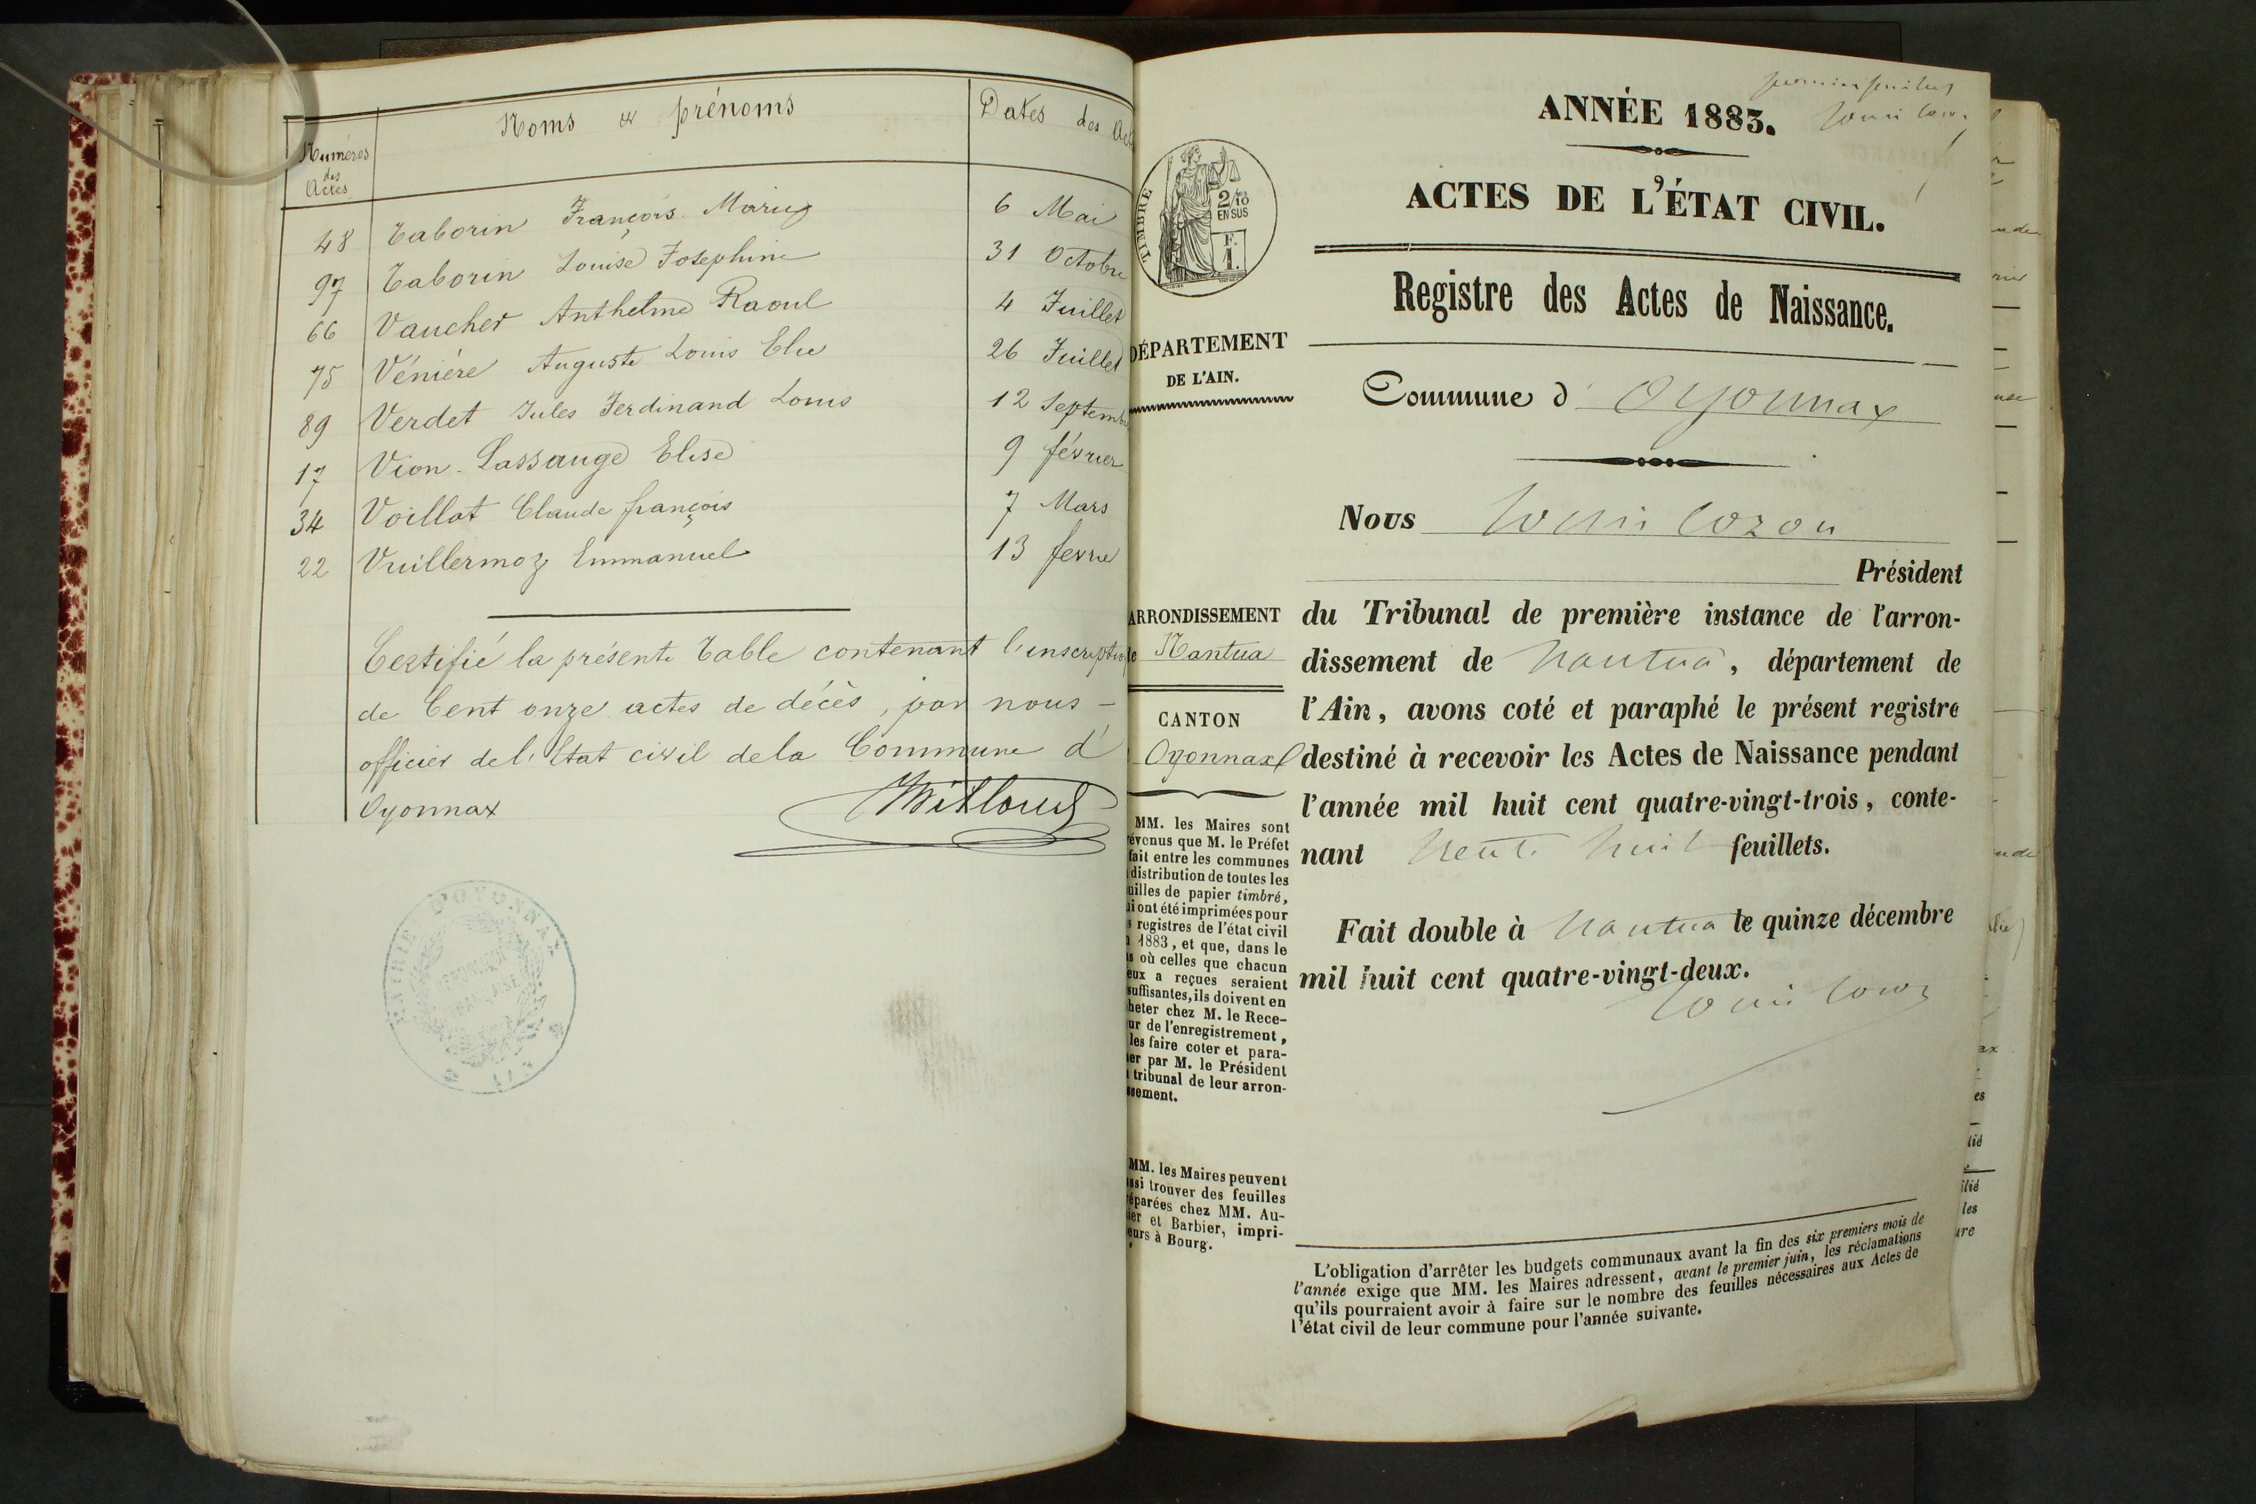 Numéros des Actes | Noms et prénoms | Dates des Act
48 | Taborin François Marius | 6 Mai
97 | Taborin Louise Josephine | 31 Octobre
66 | Vaucher Anthelme Raoul | 4 Juillet
75 | Vénière Auguste Louis Elie | 26 Juillet
89 | Verdet Jules Ferdinand Louis | 12 Septembre
17 | Vion-Lassauge Elise | 9 février
34 | Voillat Claude françois | 7 Mars
22 | Vuillermoz Emmanuel | 13 fevrie
Certifié la présente Table contenant l'inscription
de Cent onze actes de décès, par nous -
officier de l'Etat civil de la Commune d'
Oyonnax
MAIRIE D'OYONNAX
AIN
premier feuillet
ANNÉE 1883.
ACTES DE L'ÉTAT CIVIL.
TIMBRE
2/10
EN SUS
F.
1.
Registre des Actes de Naissance.
DÉPARTEMENT
DE L'AIN.
Commune d' Oyonnax
Nous Louis Cozon
Président
ARRONDISSEMENT
de Nantua
CANTON
Oyonnax
du Tribunal de première instance de l'arron-
dissement de Nantua, département de
l'Ain, avons coté et paraphé le présent registre
destiné à recevoir les Actes de Naissance pendant
l'année mil huit cent quatre-vingt-trois, conte-
nant trente huit feuillets.
Fait double à Nantua le quinze décembre
mil huit cent quatre-vingt-deux.
Louis Cozon
MM. les Maires sont
évenus que M. le Préfet
fait entre les communes
distribution de toutes les
uilles de papier timbré,
ui ont été imprimées pour
s registres de l'état civil
1883, et que, dans le
s où celles que chacun
eux a reçues seraient
suffisantes, ils doivent en
heter chez M. le Rece-
ur de l'enregistrement,
les faire coter et para-
er par M. le Président
tribunal de leur arron-
ssement.
MM. les Maires peuvent
ssi trouver des feuilles
éparées chez MM. Au-
ier et Barbier, impri-
eurs à Bourg.
L'obligation d'arrêter les budgets communaux avant la fin des six premiers mois de
l'année exige que MM. les Maires adressent, avant le premier juin, les réclamations
qu'ils pourraient avoir à faire sur le nombre des feuilles nécessaires aux Actes de
l'état civil de leur commune pour l'année suivante.